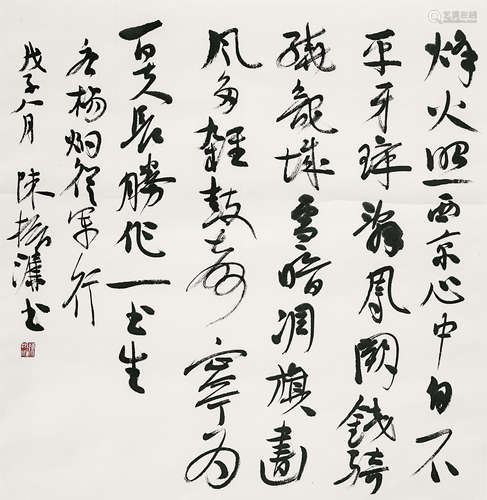 烽火照西京心中自不
平牙璋辭鳳闕鐵騎
繞龍城雪暗凋旗畫
風多雜鼓聲寧為
百夫長勝作一書生
右楊炯從軍行
戊子八月 陳振濂書